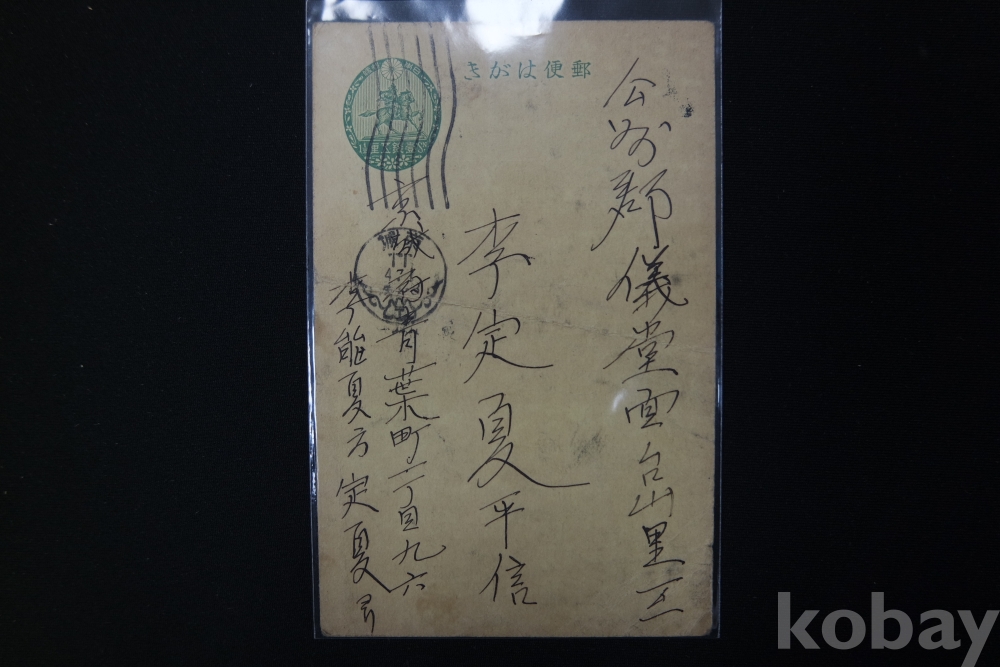 郵便はがき
公州郡儀堂面台山里
李定夏平信
京城府青葉町二丁目九六
李能夏方定夏
kobay